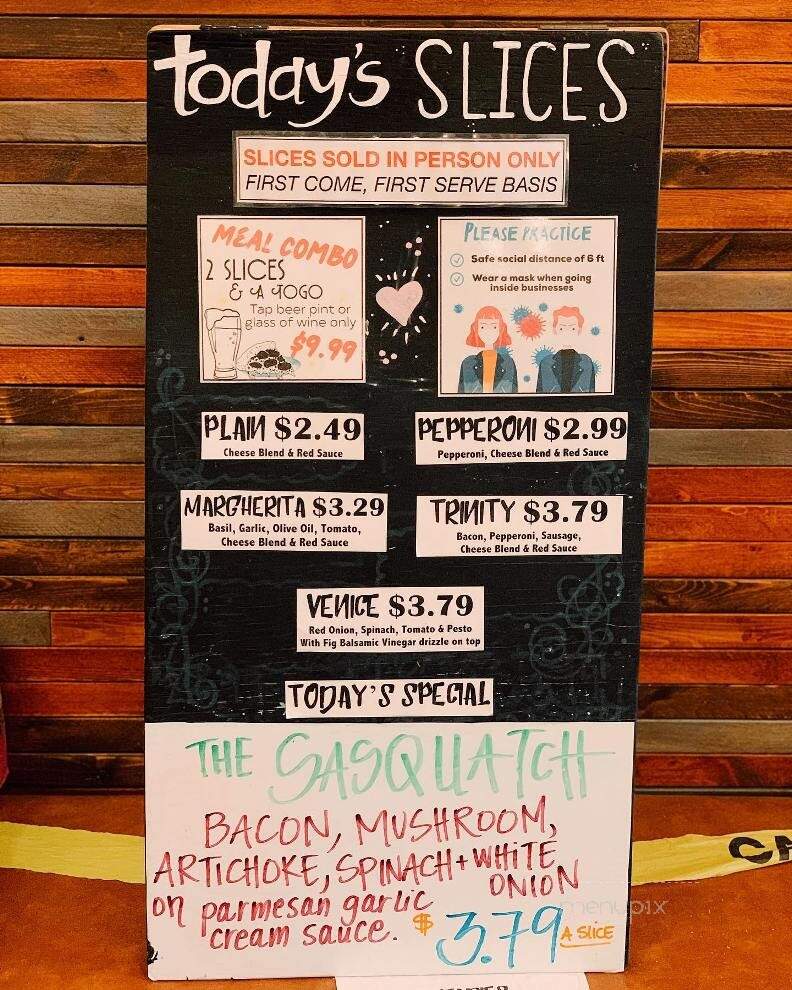 today's SLICES
SLICES SOLD IN PERSON ONLY
FIRST COME, FIRST SERVE BASIS
MEAL COMBO
2 SLICES
& A TOGO
Tap beer pint or
glass of wine only
$9.99
PLEASE PRACTICE
Safe social distance of 6 ft
Wear a mask when going
inside businesses
PLAIN $2.49
Cheese Blend & Red Sauce
PEPPERONI $2.99
Pepperoni, Cheese Blend & Red Sauce
MARGHERITA $3.29
Basil, Garlic, Olive Oil, Tomato,
Cheese Blend & Red Sauce
TRINITY $3.79
Bacon, Pepperoni, Sausage,
Cheese Blend & Red Sauce
VENICE $3.79
Red Onion, Spinach, Tomato & Pesto
With Fig Balsamic Vinegar drizzle on top
TODAY'S SPECIAL
THE SASQUATCH
BACON, MUSHROOM,
ARTICHOKE, SPINACH + WHITE
ONION
on parmesan garlic
cream sauce. $3.79 A SLICE
menupix